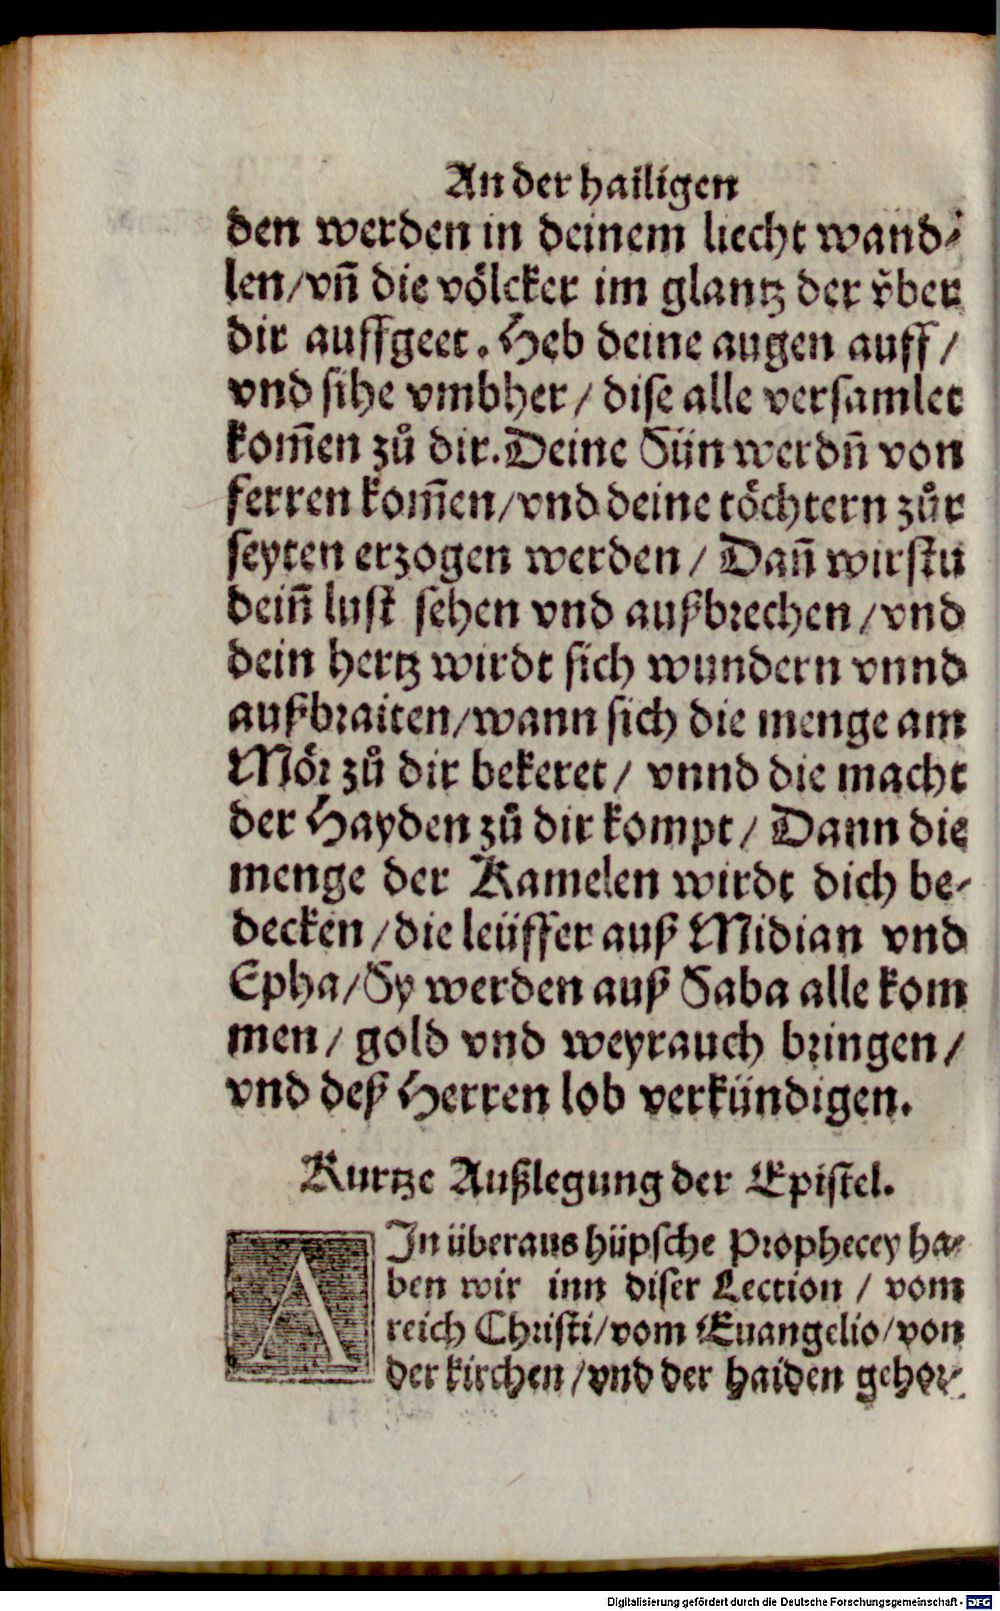 An der hailigen
den werden in deinem liecht wand⸗
len/vñ die völcker im glantz der vͤber
dir auffgeet. Heb deine augen auff/
vnd sihe vmbher/ dise alle versamlet
kom̃en zů dir. Deine Sün werdñ von
ferren kom̃en/vnd deine töchtern zůr
seyten erzogen werden/ Dañ wirstu
deiñ lust sehen vnd außbrechen/vnd
dein hertz wirdt sich wundern vnnd
außbraiten/wann sich die menge am
Mör zů dir bekeret/ vnnd die macht
der Hayden zů dir kompt/ Dann die
menge der Kamelen wirdt dich be⸗
decken/die leüffer auß Midian vnd
Epha/Sy werden auß Saba alle kom
men/ gold vnd weyrauch bringen/
vnd deß Herren lob verkündigen.
Kurtze Außlegung der Epistel.
AIn überaus hüpsche Prophecey ha⸗
ben wir inn diser Lection/ vom
reich Christi/vom Euangelio/von
der kirchen/vnd der haiden gehor⸗
Digitalisierung gefördert durch die Deutsche Forschungsgemeinschaft - DFG